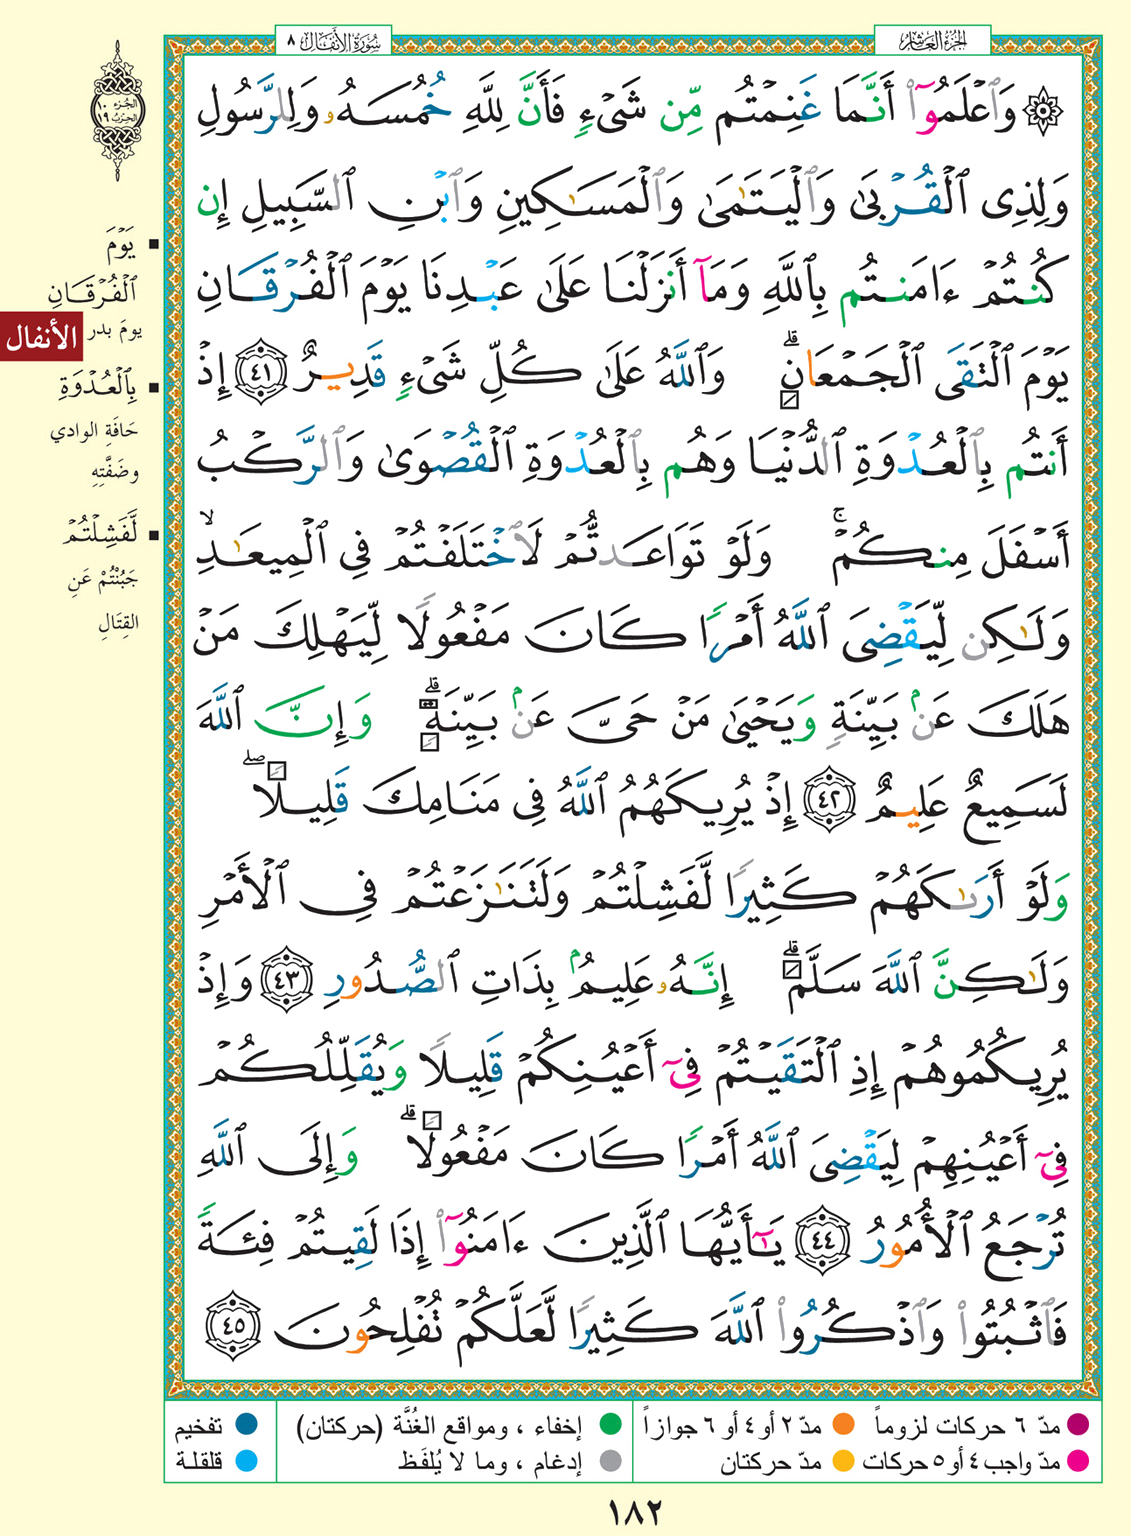 الجزء العاشر
سورة الأنفال ٨
الجزء ١٠
الحزب ١٩
۞ وَٱعۡلَمُوٓاْ أَنَّمَا غَنِمۡتُم مِّن شَيۡءٖ فَأَنَّ لِلَّهِ خُمُسَهُۥ وَلِلرَّسُولِ
وَلِذِي ٱلۡقُرۡبَىٰ وَٱلۡيَتَٰمَىٰ وَٱلۡمَسَٰكِينِ وَٱبۡنِ ٱلسَّبِيلِ إِن
كُنتُمۡ ءَامَنتُم بِٱللَّهِ وَمَآ أَنزَلۡنَا عَلَىٰ عَبۡدِنَا يَوۡمَ ٱلۡفُرۡقَانِ
يَوۡمَ ٱلۡتَقَى ٱلۡجَمۡعَانِۗ وَٱللَّهُ عَلَىٰ كُلِّ شَيۡءٖ قَدِيرٌ ٤١ إِذۡ
أَنتُم بِٱلۡعُدۡوَةِ ٱلدُّنۡيَا وَهُم بِٱلۡعُدۡوَةِ ٱلۡقُصۡوَىٰ وَٱلرَّكۡبُ
أَسۡفَلَ مِنكُمۡۚ وَلَوۡ تَوَاعَدتُّمۡ لَٱخۡتَلَفۡتُمۡ فِي ٱلۡمِيعَٰدِ ۙ
وَلَٰكِن لِّيَقۡضِيَ ٱللَّهُ أَمۡرٗا كَانَ مَفۡعُولٗا لِّيَهۡلِكَ مَنۡ
هَلَكَ عَنۢ بَيِّنَةٖ وَيَحۡيَىٰ مَنۡ حَيَّ عَنۢ بَيِّنَةٖۗ وَإِنَّ ٱللَّهَ
لَسَمِيعٌ عَلِيمٌ ٤٢ إِذۡ يُرِيكَهُمُ ٱللَّهُ فِي مَنَامِكَ قَلِيلٗاۖ
وَلَوۡ أَرَىٰكَهُمۡ كَثِيرٗا لَّفَشِلۡتُمۡ وَلَتَنَٰزَعۡتُمۡ فِي ٱلۡأَمۡرِ
وَلَٰكِنَّ ٱللَّهَ سَلَّمَۗ إِنَّهُۥ عَلِيمُۢ بِذَاتِ ٱلصُّدُورِ ٤٣ وَإِذۡ
يُرِيكُمُوهُمۡ إِذِ ٱلۡتَقَيۡتُمۡ فِيٓ أَعۡيُنِكُمۡ قَلِيلٗا وَيُقَلِّلُكُمۡ
فِيٓ أَعۡيُنِهِمۡ لِيَقۡضِيَ ٱللَّهُ أَمۡرٗا كَانَ مَفۡعُولٗاۗ وَإِلَى ٱللَّهِ
تُرۡجَعُ ٱلۡأُمُورُ ٤٤ يَٰٓأَيُّهَا ٱلَّذِينَ ءَامَنُوٓاْ إِذَا لَقِيتُمۡ فِئَةٗ
فَٱثۡبُتُواْ وَٱذۡكُرُواْ ٱللَّهَ كَثِيرٗا لَّعَلَّكُمۡ تُفۡلِحُونَ ٤٥
يَوۡمَ
ٱلۡفُرۡقَانِ
يومَ بدر
الأنفال
بِٱلۡعُدۡوَةِ
حَافَةِ الوادي
وضَفَّتِهِ
لَّفَشِلۡتُمۡ
جَبُنْتُمْ عَنِ
القِتَالِ
مدّ ٦ حركات لزوماً
مدّ ٢ أو ٤ أو ٦ جوازاً
إخفاء ، ومواقع الغُنَّة (حركتان)
تفخيم
مدّ واجب ٤ أو ٥ حركات
مدّ حركتان
إدغام ، وما لا يُلفَظ
قلقلة
١٨٢